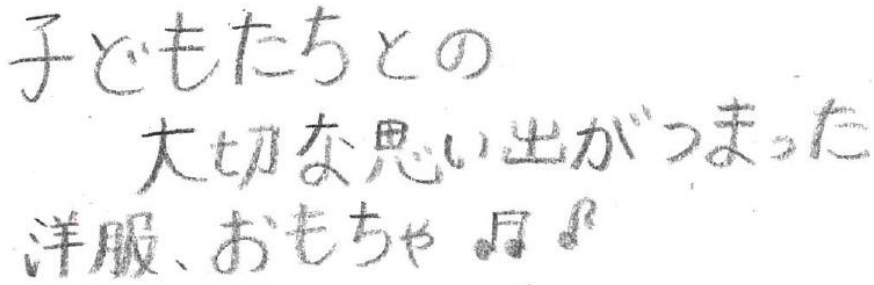 子どもたちとの
大切な思い出がつまった
洋服、おもちゃ♫♪